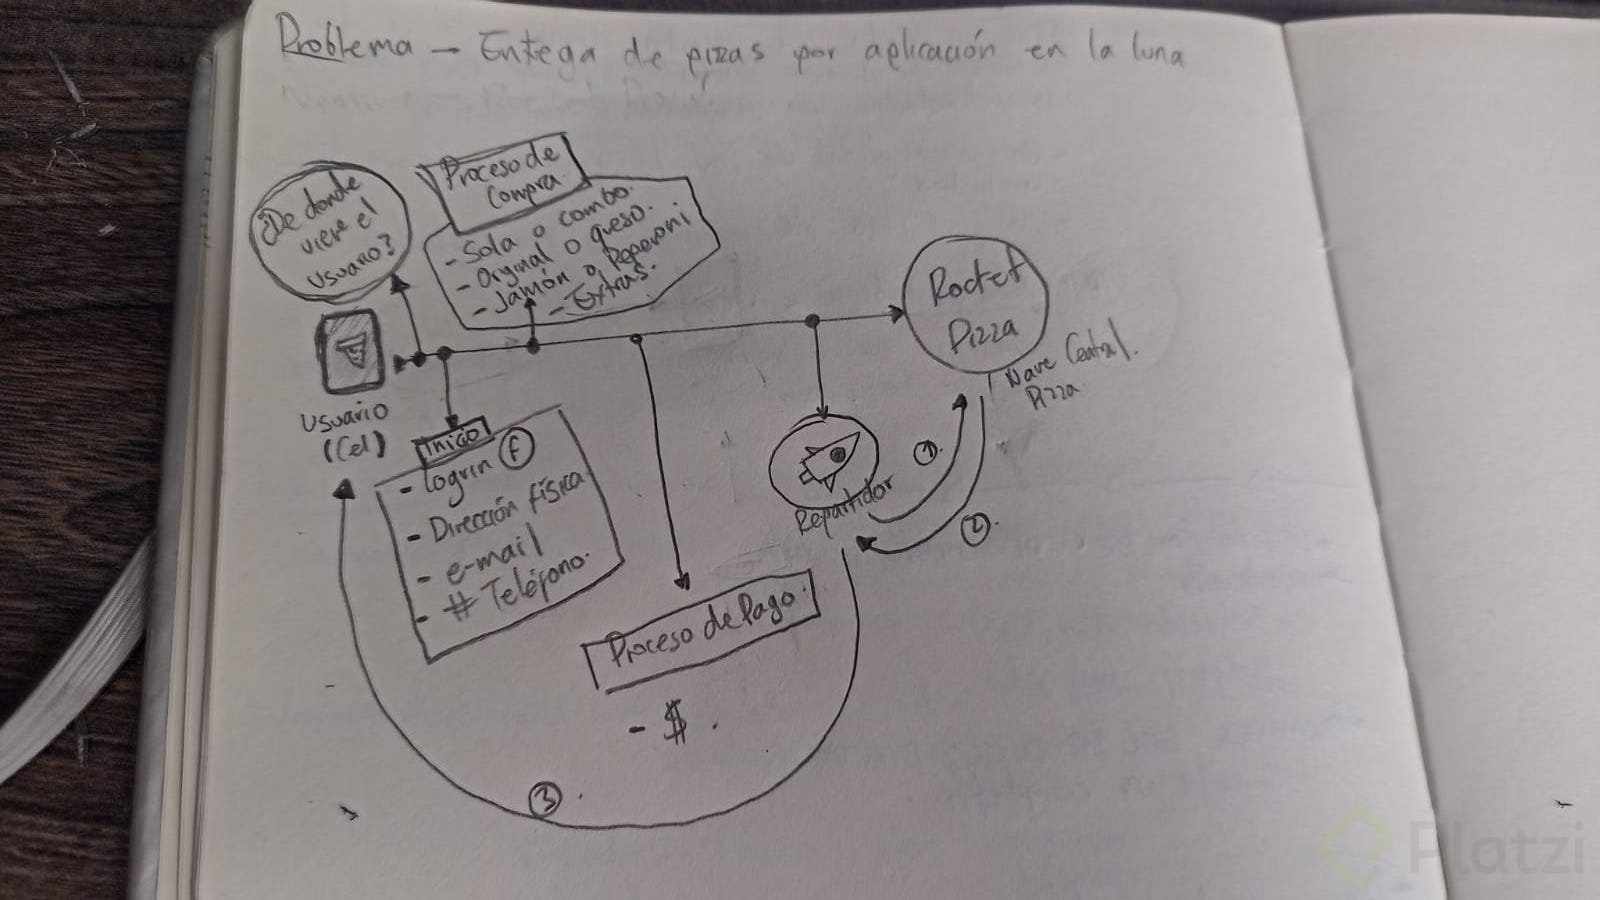 Problema - Entega de pizzas por aplicación en la luna
¿De donde
viene el
usuario?
Proceso de
Compra.
- Sola o combo.
- Orginal o queso.
- Jamón o Peperoni
- Extras.
Rocket
Pizza
Nave Central.
Pizza
Usuario
(Cel)
Inicio
- Logrin f
- Dirección física
- e-mail
- # Teléfono.
Repartidor
1.
2.
Proceso de Pago.
- $.
3.
Platzi